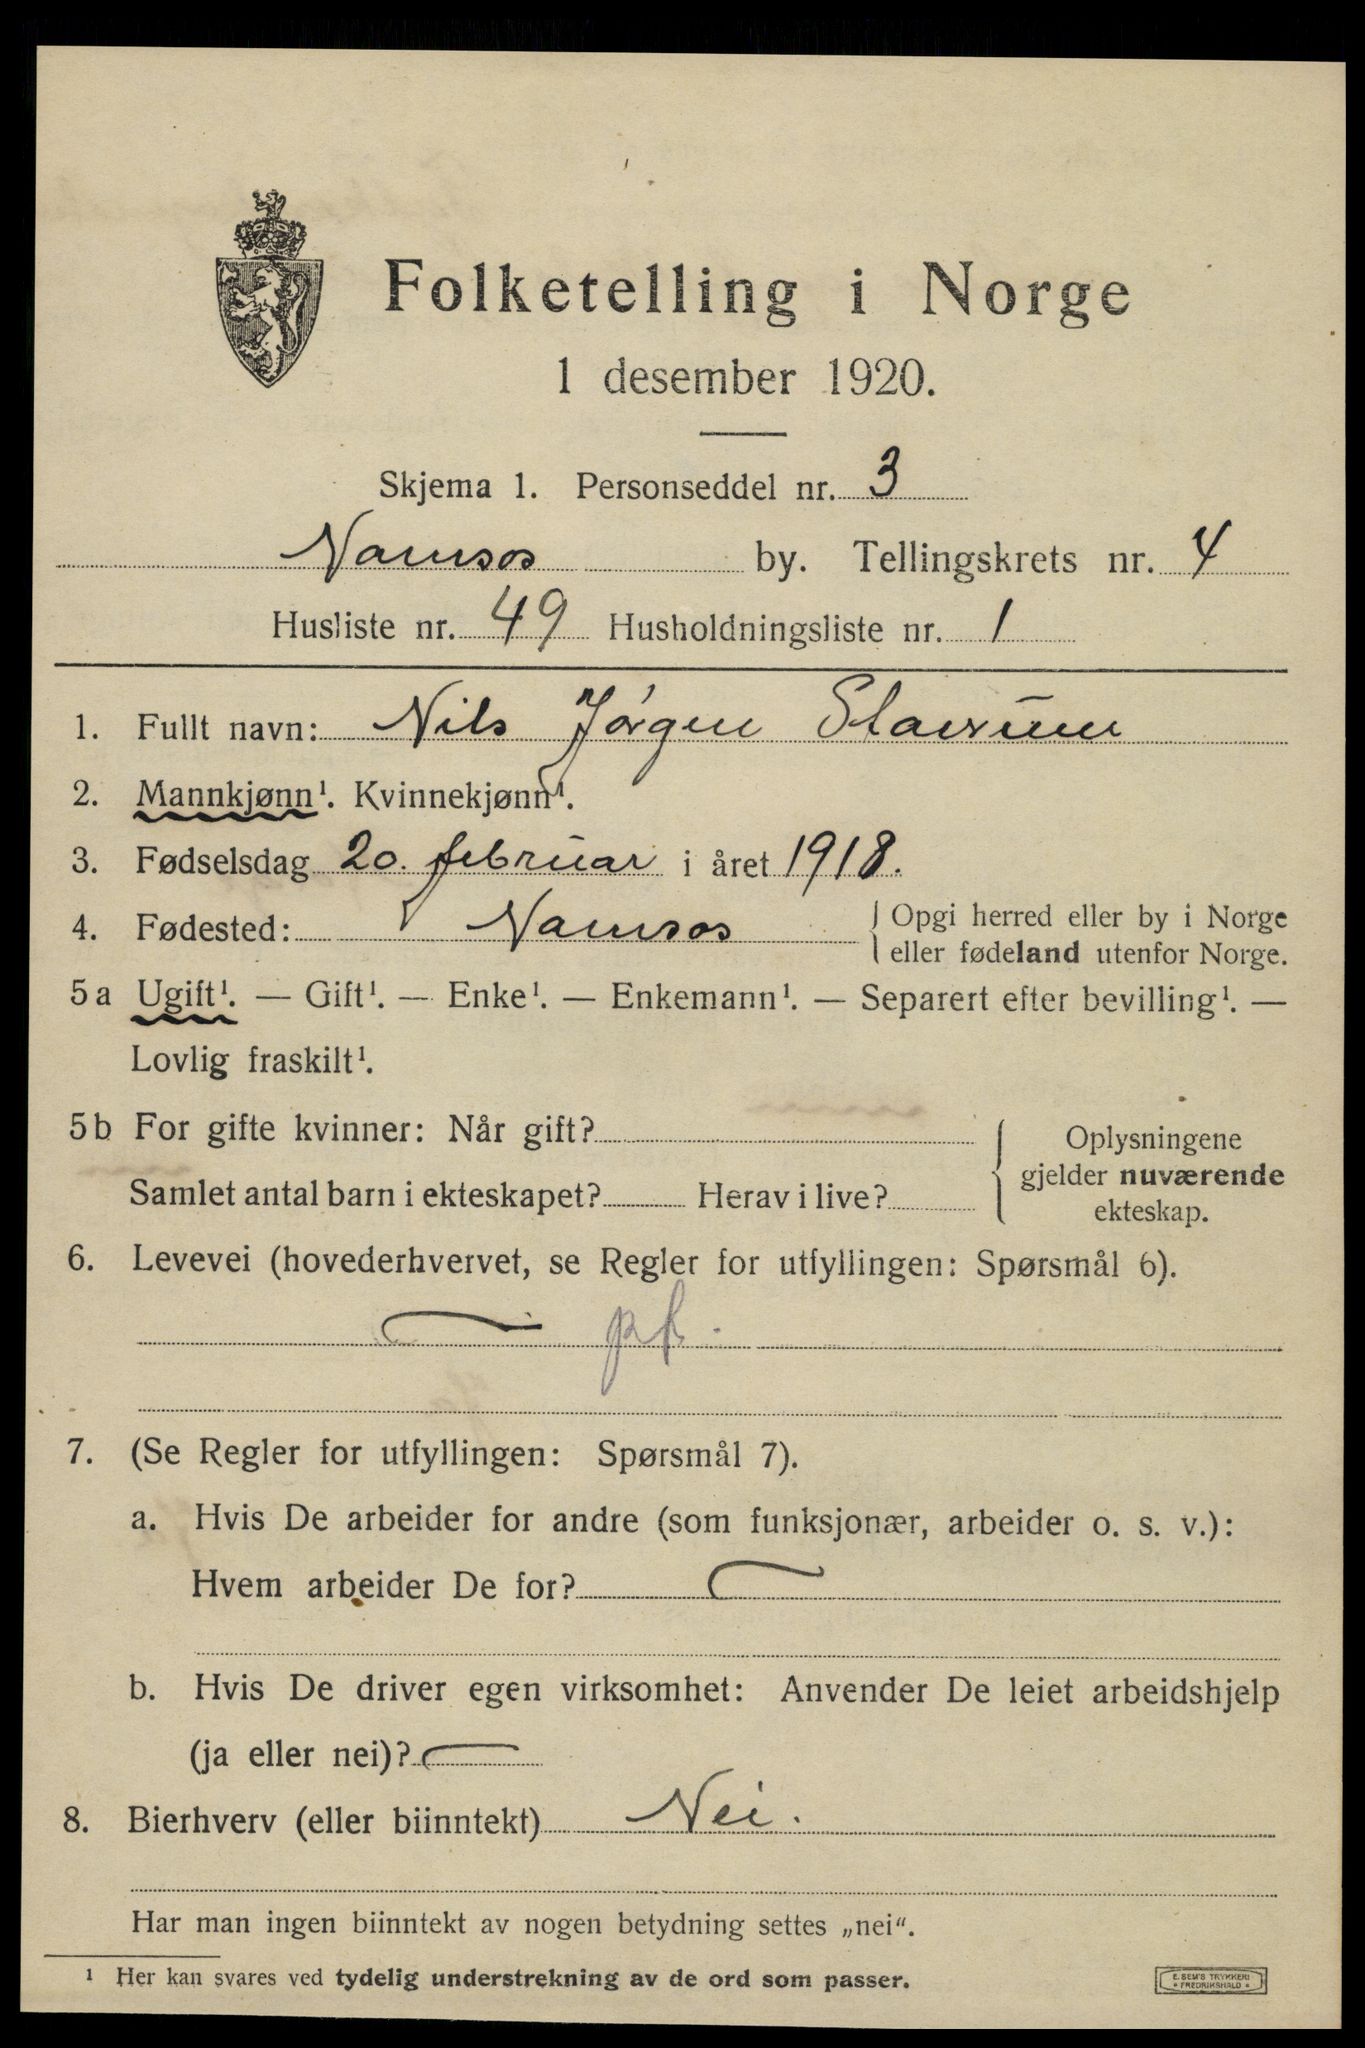 Folketelling i Norge
1 desember 1920.
Skjema 1. Personseddel nr. 3
Namsos by. Tellingskrets nr. 4
Husliste nr. 49 Husholdningsliste nr. 1
1. Fullt navn: Nils Jørgen Stavrum
2. Mannkjønn¹. Kvinnekjønn¹.
3. Fødselsdag 20. februar i året 1918.
4. Fødested: Namsos { Opgi herred eller by i Norge
eller fødeland utenfor Norge.
5 a Ugift¹. — Gift¹. — Enke¹. — Enkemann¹. — Separert efter bevilling¹. —
Lovlig fraskilt¹.
5 b For gifte kvinner: Når gift?
Samlet antal barn i ekteskapet? Herav i live?
{ Oplysningene
gjelder nuværende
ekteskap.
6. Levevei (hovederhvervet, se Regler for utfyllingen: Spørsmål 6).
— pf.
7. (Se Regler for utfyllingen: Spørsmål 7).
a. Hvis De arbeider for andre (som funksjonær, arbeider o. s. v.):
Hvem arbeider De for? —
b. Hvis De driver egen virksomhet: Anvender De leiet arbeidshjelp
(ja eller nei)? —
8. Bierhverv (eller biinntekt) Nei.
Har man ingen biinntekt av nogen betydning settes „nei".
¹ Her kan svares ved tydelig understrekning av de ord som passer.
E. SEM'S TRYKKERI
FREDRIKSHALD